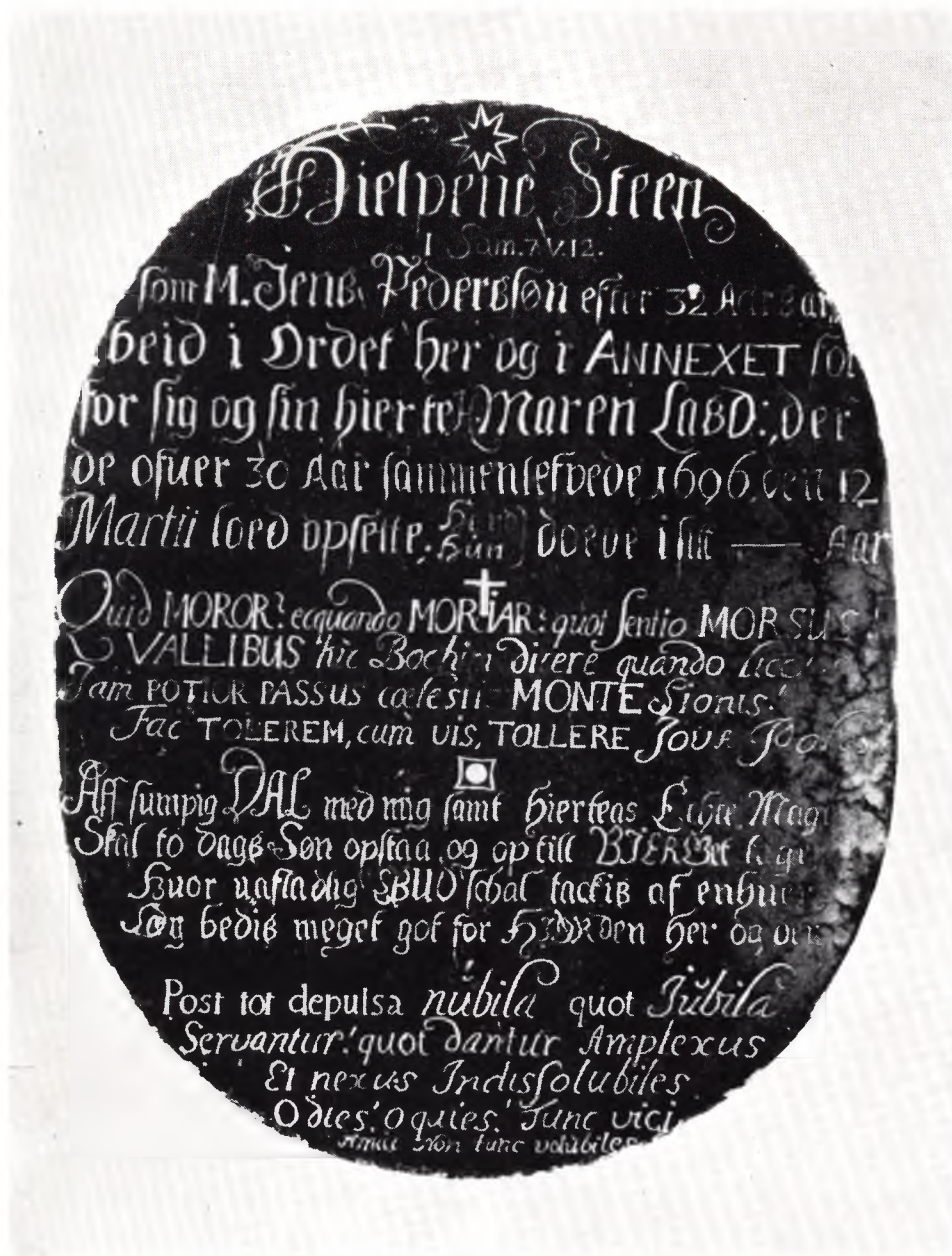 Hielpene Steen
1 Sam. 7 V. 12.
som M. Jens Pedersøn efter 32 Aars ar
beid i Ordet her og i ANNEXET lod
for sig og sin hierte Maren LabD: der
de ofuer 30 Aar sammenlefvede 1696 den 12
Martii loed opsette. Hun doede i sit — Aar
Quid MOROR? ecquando MORIAR: quot sentio MORSUS
VALLIBUS hic Bochim divere quando
Jam POTIOR PASSUS cœlesti MONTE Sionis!
Fac TOLEREM, cùm vis, TOLLERE JOVA
Aff sumpig DAL med mig samt hiertens Echte Mag
Skal to dags Søn opstaa og op till BIERget
Huor uafladlig BUD schal tackis af enhu
Søg bedis meget got for HJORDen her og
Post tot depulsa nubila quot Jubila
Servantur! quot dantur Amplexus
Et nexus Indissolubiles
O dies! o quies! Tunc vici
Non tunc volubiles